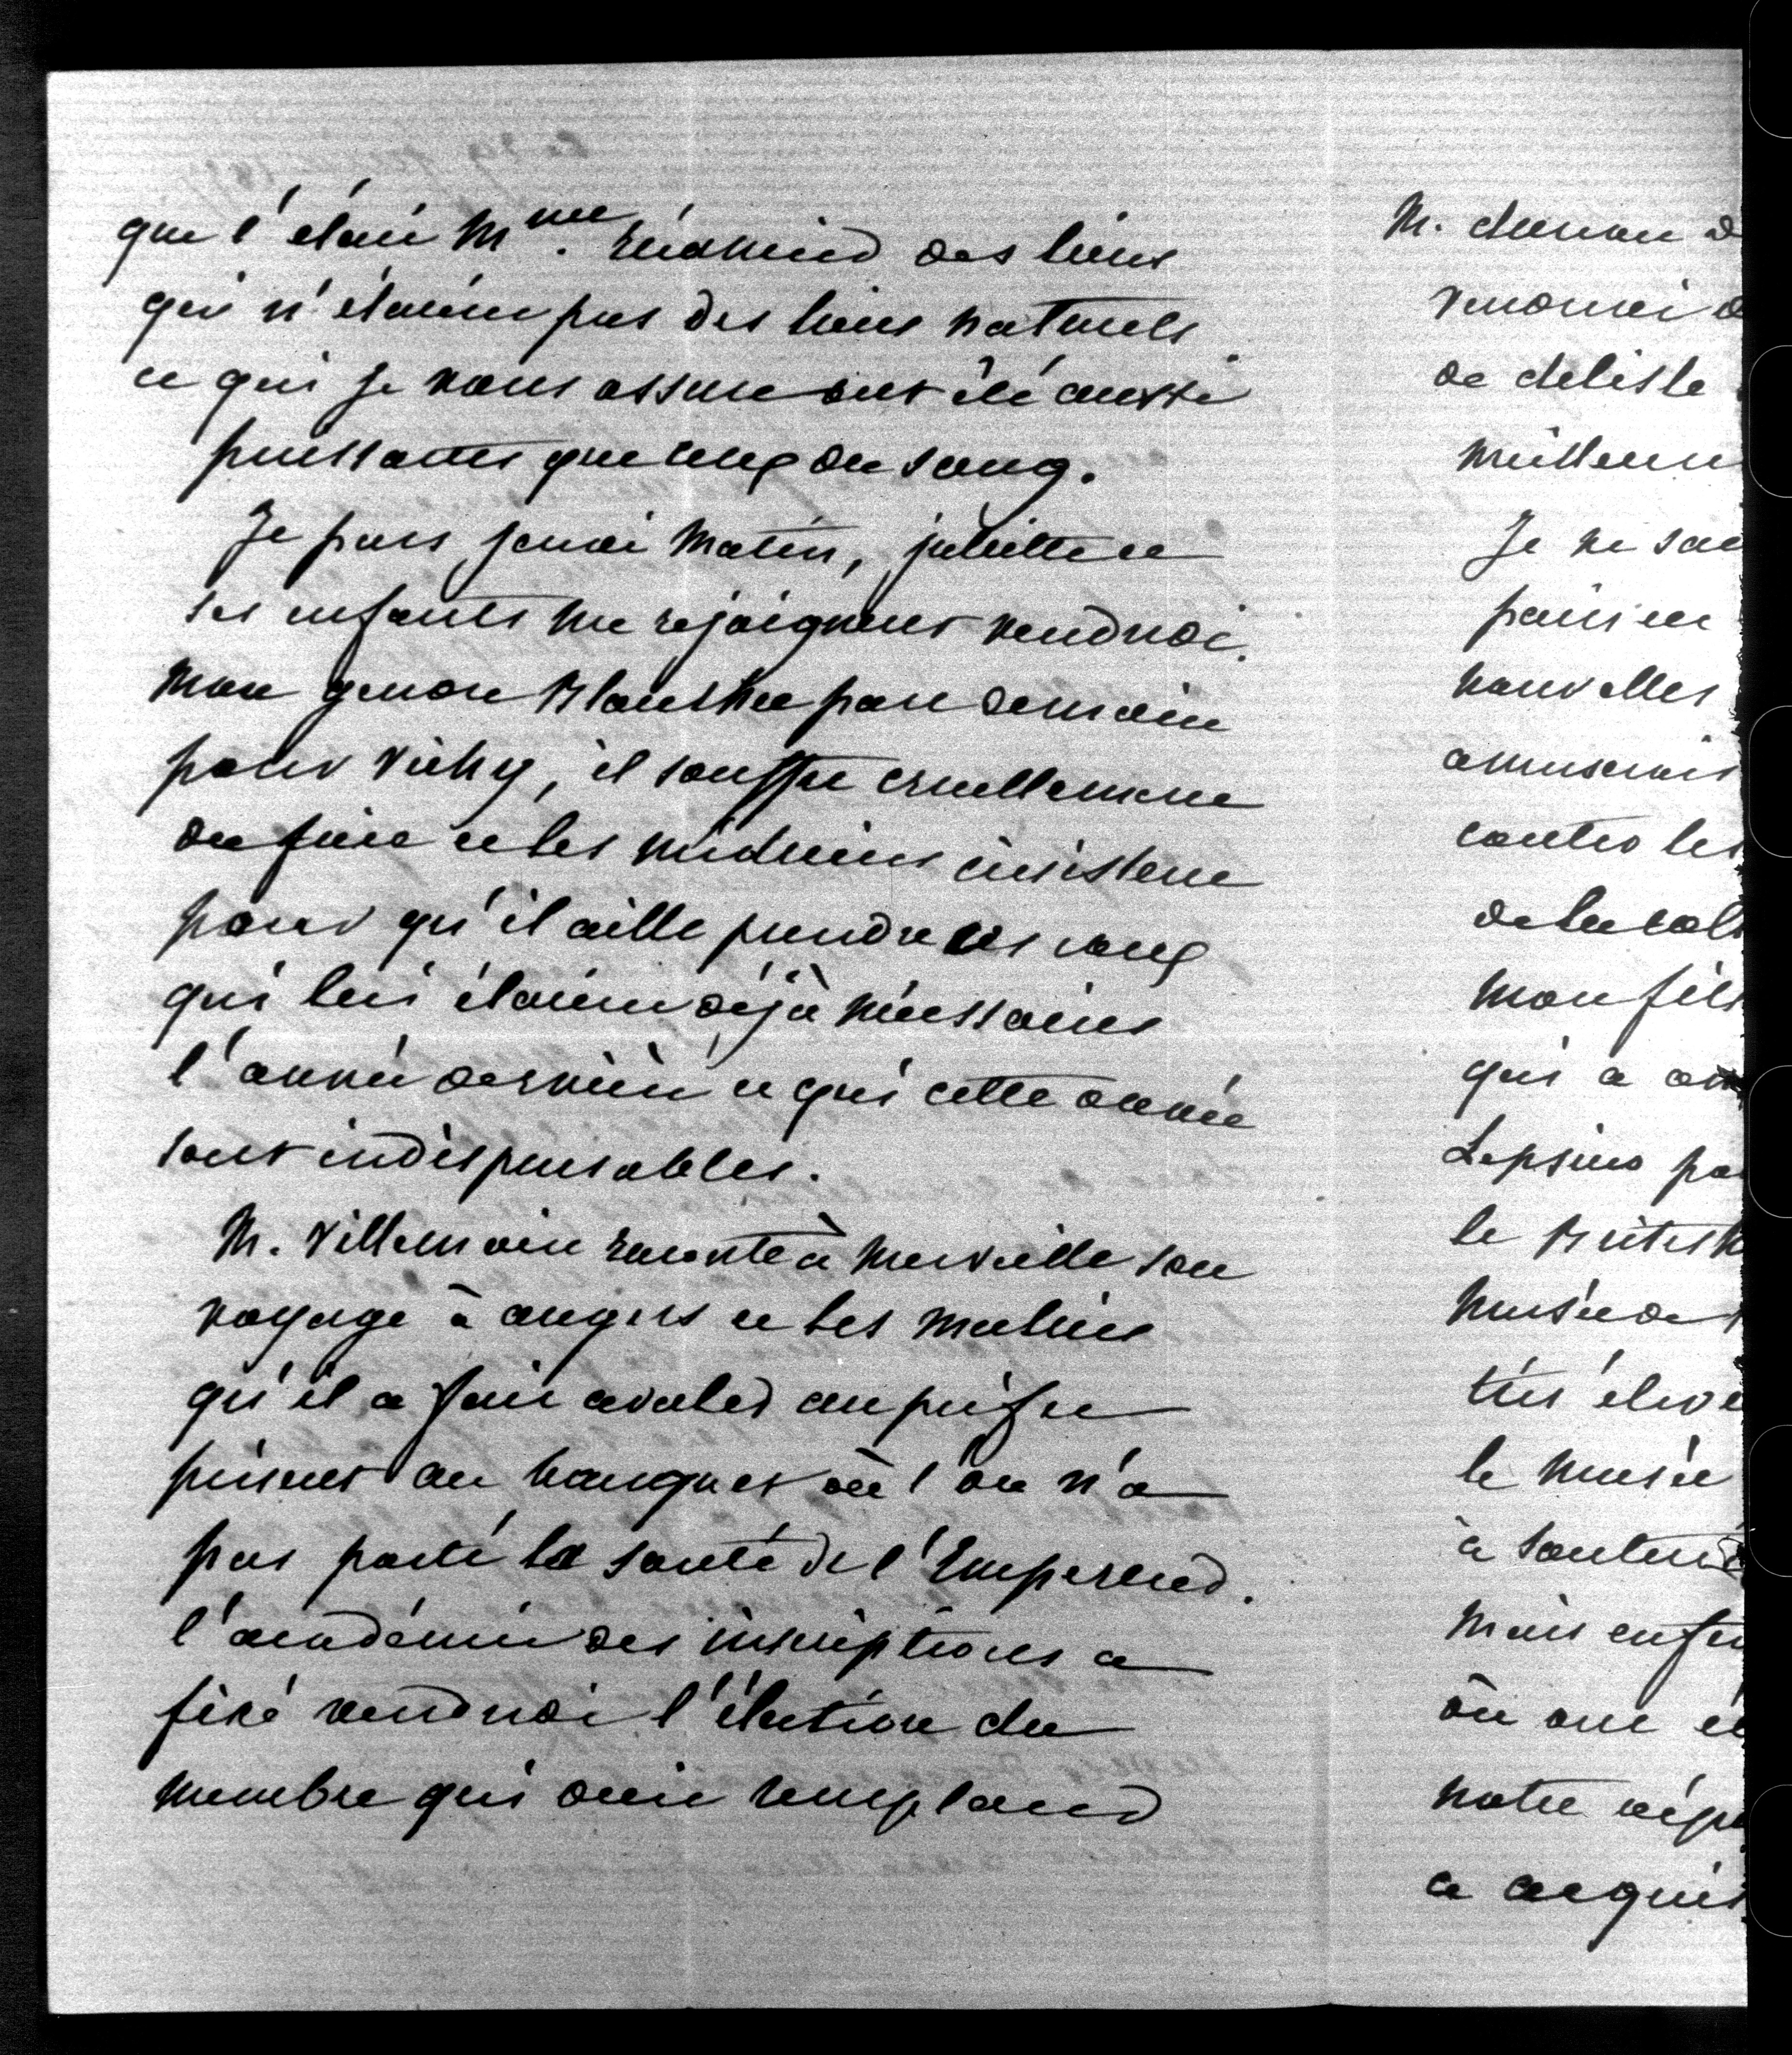 que l'était Mme. des liens
qui n'étaient pas des liens naturels
et qui je vous assure ont été aussi
puissantes que ceux du sang.
Je pars jeudi matin, juliette et
ses enfants me rejoignent vendredi.
mon gendre part demain
pour Vichy, il souffre cruellement
du foie et les médecins insistent
pour qu'il aille prendre les eaux
qui lui étaient déjà nécessaires
l'année dernière et qui cette année
sont indispensables.
M. Villemain raconte à merveille son
voyage à angers et les malices
qu'il a fait avaler au préfet
présent au banquet où l'on n'a
pas porté la santé de l'Empereur.
l'académie des inscriptions a
fixé vendredi l'élection du
membre qui doit remplacer
M.
de
de delisle
meilleur
Je ne sai
paris et
nouvelles
amuserais
contre les
de la col
mon fils
qui a
Lepsius pa
le British
musée de
très élevé
le musée
à
mais enfin
où
notre
a acquis